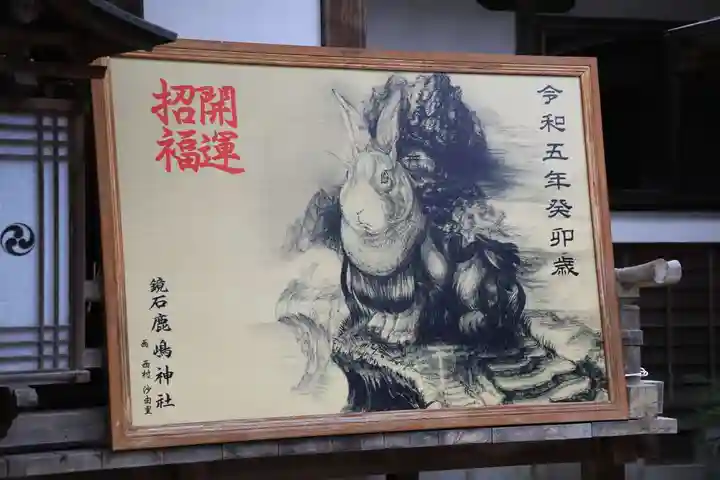 令和五年癸卯歳
開運
招福
鏡石鹿嶋神社
画 西村 沙由里